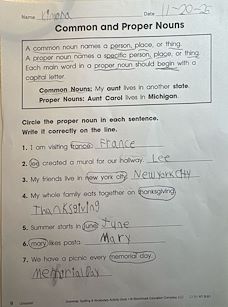 Name Date 11-20-25
Common and Proper Nouns
A common noun names a person, place, or thing.
A proper noun names a specific person, place, or thing.
Each main word in a proper noun should begin with a
capital letter.
Common Nouns: My aunt lives in another state.
Proper Nouns: Aunt Carol lives in Michigan.
Circle the proper noun in each sentence.
Write it correctly on the line.
1. I am visiting france. France
2. lee created a mural for our hallway. Lee
3. My friends live in new york city. New York City
4. My whole family eats together on thanksgiving.
Thanksgiving
5. Summer starts in june. June
6. mary likes pasta. Mary
7. We have a picnic every memorial day.
Memorial Day